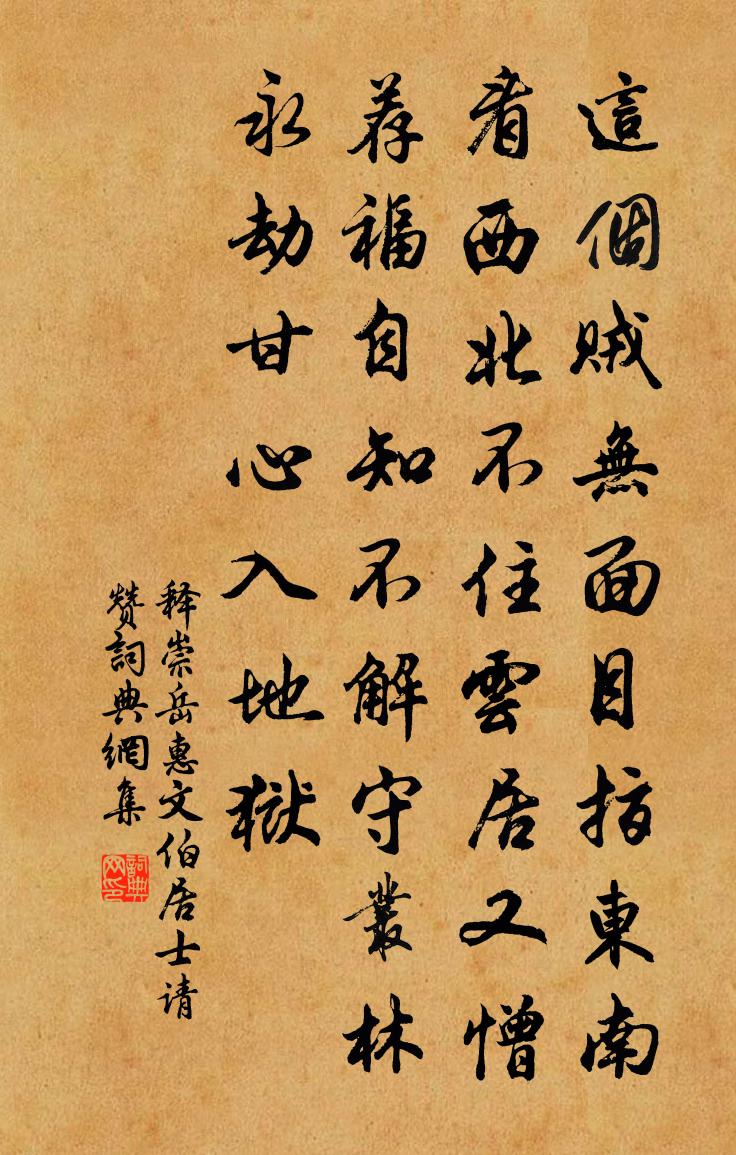 這個賊無面目指東南
看西北不住雲居又憎
荐福自知不解守叢林
永劫甘心入地獄
释崇岳惠文伯居士请
赞詞典網集
詞典网印